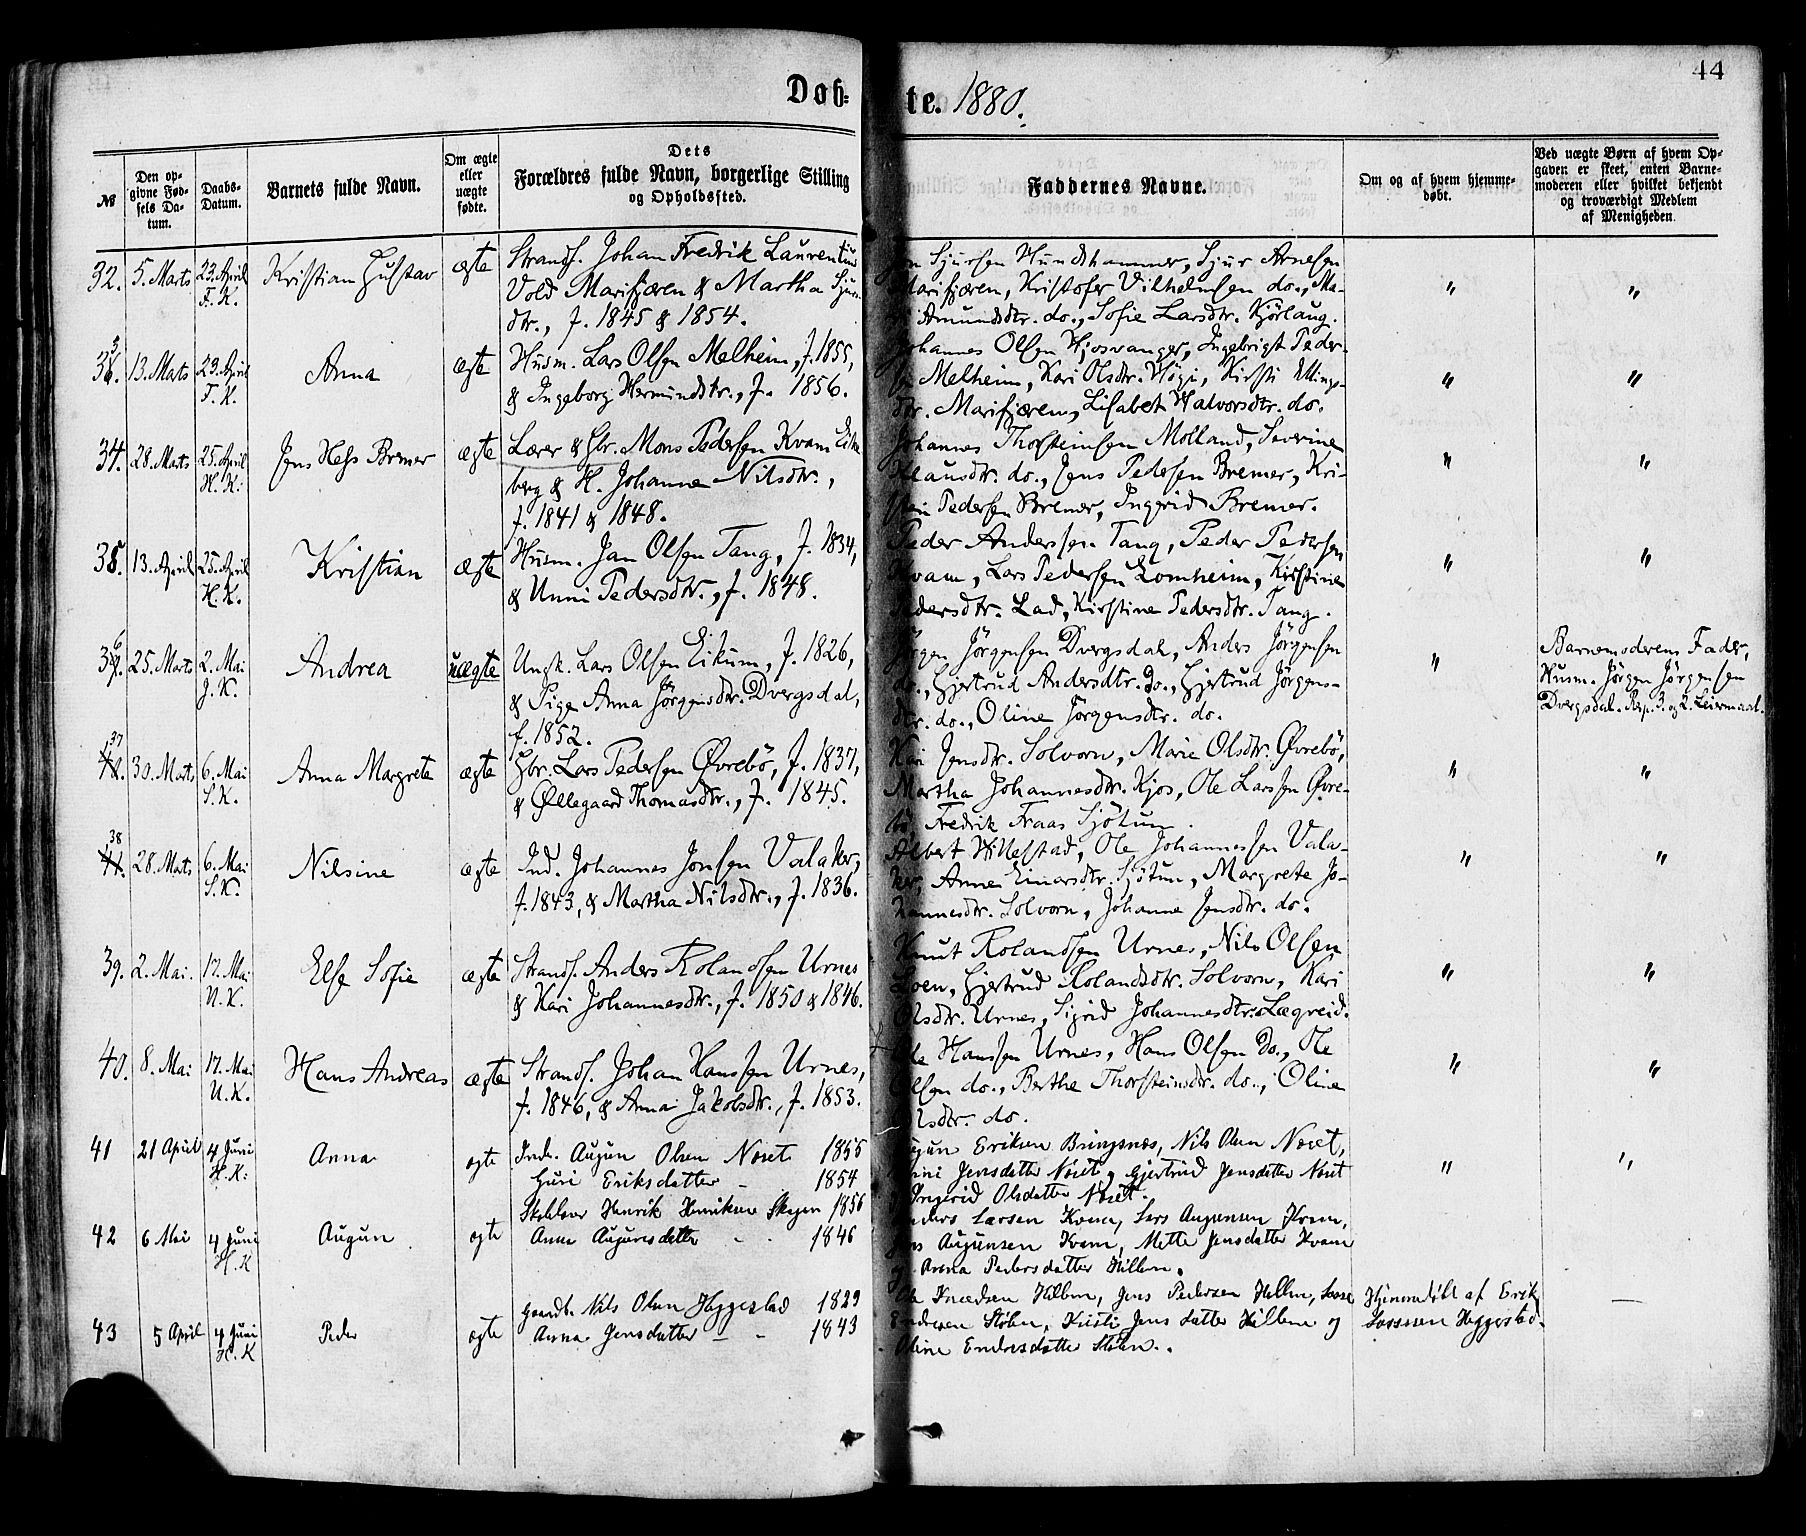 44
Døb- te. 1880.
№
Den opgivne Fødsels Datum.
Daabs-Datum.
Barnets fulde Navn.
Om ægte eller uægte fødte.
Dets Forældres fulde Navn, borgerlige Stilling og Opholdssted.
Faddernes Navne.
Om og af hvem hjemmedøbt.
Ved uægte Børn af hvem Opgaven er skeet, enten Barnemoderen eller hvilket bekjendt og troværdigt Medlem af Menigheden.
32. 5. Marts 23. April F. K. Kristian Gustav ægte
Strands. Johan Fredrik Laurentius
Vold Marifjæren & Martha Sjurs-
dtr., f. 1845 & 1854.
Sjursen Hundshammer, Sjur Arnesen
Marifjæren, Kristofer Vilhelmsen do., Ma-
Amundsdtr. do., Sofie Larsdtr. Kjörlaug.
" "
33. 13. Marts 23. April F. K. Anna ægte
Husm. Lars Olsen Melheim, f. 1855,
& Ingeborg Hermundsdtr., f. 1856.
Johannes Olsen Hjosvanger, Ingebrigt Peder-
sen Melheim, Kari Olsdtr. Högi, Kirsti Ellings-
dtr. Marifjæren, Lisabet Halvorsdtr. do.
" "
34. 28. Marts 25. April H. K. Jens Hess Bremer ægte
Lærer & Gbr. Mons Pedersen Kvam Eike
berg & H. Johanne Nilsdtr.,
f. 1841 & 1848.
Johannes Thorsteinsen Molland, Severine
Klausdtr. do., Jens Pedersen Bremer, Kri-
Pedersen Bremer, Ingerid Bremer.
" "
35. 13. April 25. April H. K. Kristian ægte
Husm. Jan Olsen Tang, f. 1834,
& Unni Pedersdtr., f. 1848.
Peder Andersen Tang, Peder Pedersen
Kvam, Lars Pedersen Lomheim, Kirstine
Pedersdtr. Lad, Kirstine Pedersdtr. Tang.
" "
36. 25. Marts 2. Mai J. K. Andrea uægte
Ungk. Lars Olsen Eikum, f. 1826,
& Pige Anna Jörgensdtr. Dvergsdal,
f. 1852.
Jörgen Jörgensen Dvergsdal, Anders Jörgensen
do., Gjertrud Andersdtr. do., Gjertrud Jörgens-
dtr. do., Oline Jörgensdtr. do.
"
Barnemoderens Fader,
Husm. Jörgen Jörgensen
Dvergsdal. Rep. 3. og 2. Leiermaal.
37 30. Marts 6. Mai S. K. Anna Margrete ægte
Gbr. Lars Pedersen Øvrebö, f. 1837,
& Øllegaard Thomasdtr., f. 1845.
Kari Jensdtr. Solvorn, Marie Olsdtr. Øvrebö,
Martha Johannesdtr. Kjos, Ole Larsen Øvre-
bö, Fredrik Fraas Sjötun.
" "
38 28. Marts 6. Mai S. K. Nilsine ægte
Ind. Johannes Jonsen Valaker,
f. 1843, & Martha Nilsdtr., f. 1836.
Albert Hillestad, Ole Johannessen Vala-
ker, Anne Einarsdtr. Sjötun, Margrete Jo-
hannesdtr. Solvorn, Johanne Jensdtr. do.
" "
39. 2. Mai. 17. Mai U. K. Else Sofie ægte
Strands. Anders Rolandsen Urnes
& Kari Johannesdtr., f. 1850 & 1846.
Knut Rolandsen Urnes, Nils Olsen
Loen, Gjertrud Rolandsdtr. Solvorn, Kari
Olsdtr. Urnes, Sigrid Johannesdtr. Lægreid.
" "
40. 8. Mai 17. Mai U. K. Hans Andreas ægte
Strands. Johan Hansen Urnes,
f. 1846, & Anna Jakobsdtr., f. 1853.
Ole Hansen Urnes, Hans Olsen do., Ole
Olsen do., Berthe Thorsteinsdtr. do., Oline
Olsdtr. do.
" "
41 21 April 4 Juni H. K. Anna ægte
Indr. Augun Olsen Næset 1855
Guri Eriksdatter - 1854
Augun Eriksen Bringsnæs, Nils Olsen Næset,
Jensdatter Næset, Gjertrud Jensdatter Næset
Ingerid Olsdatter Næset.
" "
42 6 Mai 4 Juni H. K Augun ægte
Henrik Henriksen Skagen 1856
Anna Augunsdatter - - 1846
Anders Larsen Kvam, Lars Augunsen Kvam,
Jens Augunsen Kvam, Mette Jensdatter Kvam
og Anna Pedersdatter Hillem.
43 5 April 4 Juni H. K Peder ægte
Gaardb. Nils Olsen Heggestad 1829
Anna Jensdatter - - 1843
Ole Hillem, Jens Pedersen Hillem, Lasse
Endresen Stölen, Kirsti Jensdatter Hillem og
Oline Endresdatter Stölen.
Hjemmedöbt af Erik
Lassesen Heggestad.
—